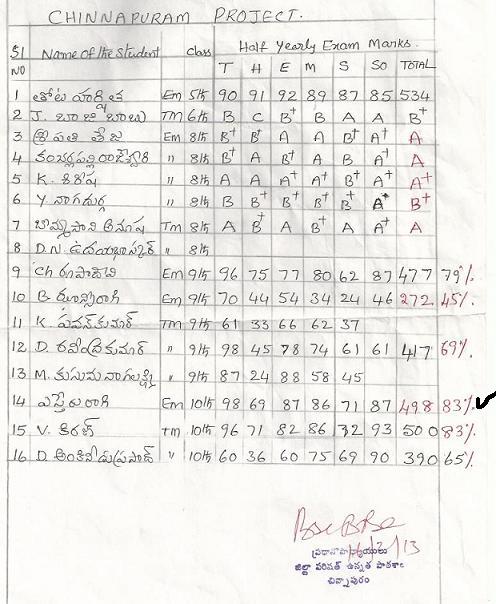 CHINNAPURAM PROJECT.
Half Yearly Exam Marks.
Sl NO Name of the Student class T H E M S So TOTAL
1 తోట హర్షిత Em 5th 90 91 92 89 87 85 534
2 J. బాజి బాబు TM 6th B C B+ B A A B+
3 శ్రీపతి తేజ Em 8th B+ B+ A A B+ A+ A
4 Em 8th B+ A B+ A B A+ A
5 K. శిరీష " 8th A A A A+ B+ A+ A+
6 Y నాగదుర్గ " 8th B B+ B+ B+ B+ A+ B+
7 Tm 8th A B+ A B+ A A+ A
8 D.N. ఉదయభాస్కర్ " 8th
9 Ch రూపాదేవి Em 9th 96 75 77 80 62 87 477 79%
10 B. ఝాన్సీరాణి Em 9th 70 44 54 34 24 46 272 45%
11 K. పవన్ కుమార్ TM 9th 61 33 66 62 37
12 D. రవీంద్రకుమార్ " 9th 98 45 78 74 61 61 417 69%
13 M. కుసుమ నాగలక్ష్మి " 9th 87 24 88 58 45
14 ఎస్తేరు రాణి Em 10th 98 69 87 86 71 87 498 83%
15 V. కిరణ్ TM 10th 96 71 82 86 72 93 500 83%
16 D. అంకినీడు ప్రసాద్ " 10th 60 36 60 75 69 90 390 65%
ప్రధానోపాధ్యాయులు
జిల్లా పరిషత్ ఉన్నత పాఠశాల
చిన్నాపురం